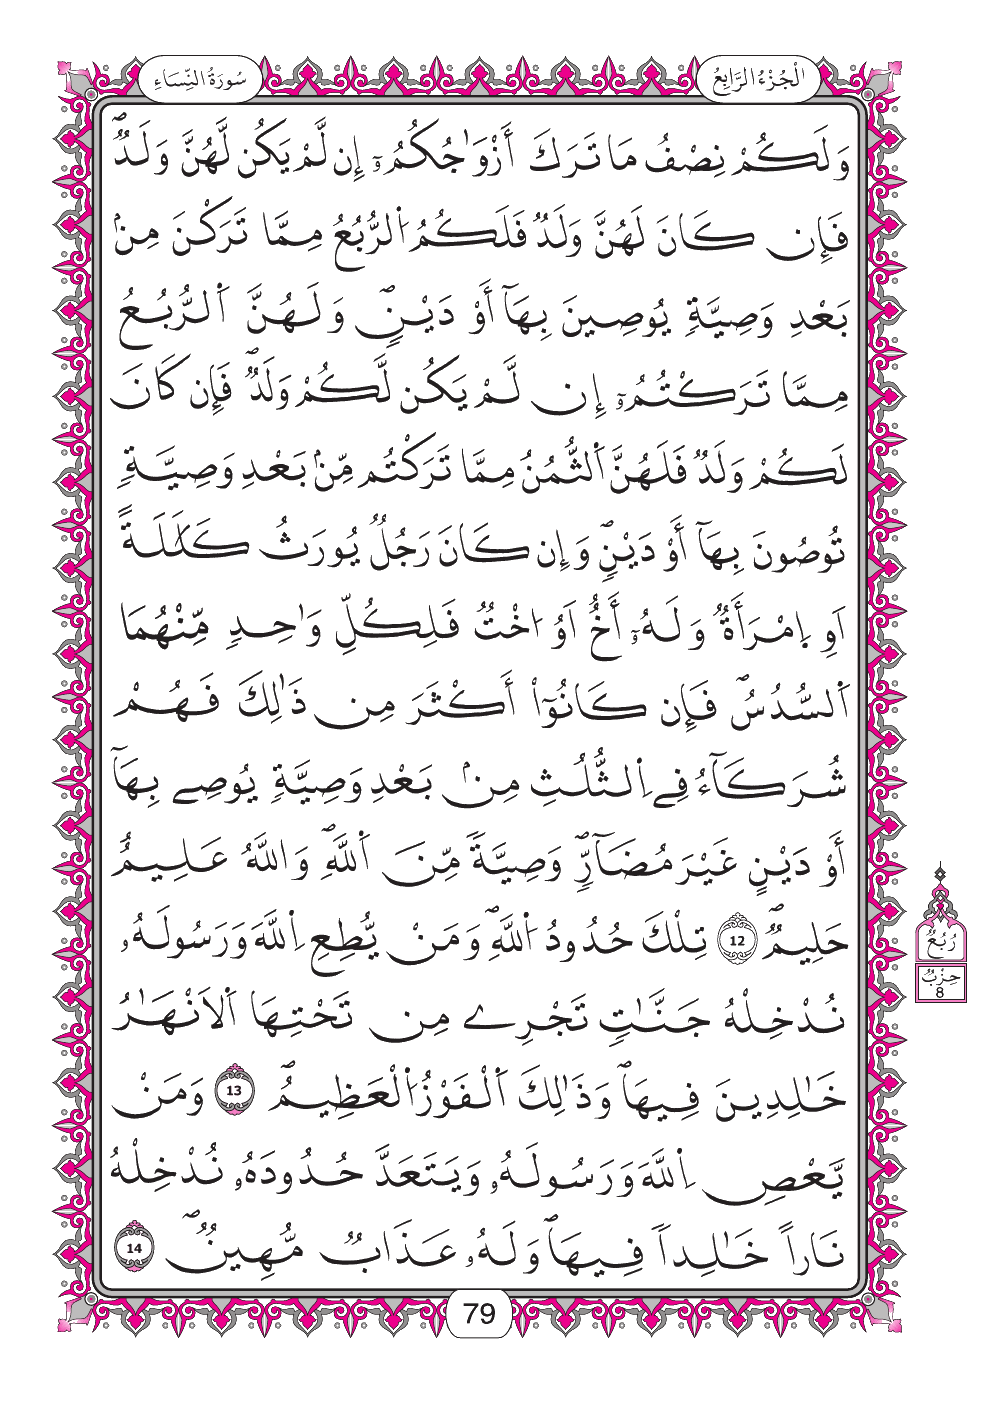 سُورَةُ النِّسَاءِ
الْجُزْءُ الرَّابِعُ
وَلَكُمْ نِصْفُ مَا تَرَكَ أَزْوَٰجُكُمُۥٓ إِن لَّمْ يَكُن لَّهُنَّ وَلَدٞۖ
فَإِن كَانَ لَهُنَّ وَلَدٞ فَلَكُمُ اُ۬لرُّبُعُ مِمَّا تَرَكْنَ مِنۢ
بَعْدِ وَصِيَّةٖ يُوصِينَ بِهَآ أَوْ دَيْنٖۖ وَلَهُنَّ اَ۬لرُّبُعُ
مِمَّا تَرَكْتُمُۥٓ إِن لَّمْ يَكُن لَّكُمْ وَلَدٞۖ فَإِن كَانَ
لَكُمْ وَلَدٞ فَلَهُنَّ اَ۬لثُّمُنُ مِمَّا تَرَكْتُم مِّنۢ بَعْدِ وَصِيَّةٖ
تُوصُونَ بِهَآ أَوْ دَيْنٖۖ وَإِن كَانَ رَجُلٞ يُورَثُ كَلَٰلَةً
اَوِ اِ۪مْرَأَةٞ وَلَهُۥٓ أَخٌ اَوُ ا۟خْتٞ فَلِكُلِّ وَٰحِدٖ مِّنْهُمَا
اَ۬لسُّدُسُۖ فَإِن كَانُوٓاْ أَكْثَرَ مِن ذَٰلِكَ فَهُمْ
شُرَكَآءُ فِے اِ۬لثُّلُثِ مِنۢ بَعْدِ وَصِيَّةٖ يُوصِے بِهَآ
أَوْ دَيْنٍ غَيْرَ مُضَآرّٖۖ وَصِيَّةٗ مِّنَ اَ۬للَّهِۖ وَاللَّهُ عَلِيمٌ
حَلِيمٞۖ 12 تِلْكَ حُدُودُ اُ۬للَّهِۖ وَمَنْ يُّطِعِ اِ۬للَّهَ وَرَسُولَهُۥ
نُدْخِلْهُ جَنَّٰتٖ تَجْرِے مِن تَحْتِهَا اَ۬لَانْهَٰرُ
خَٰلِدِينَ فِيهَاۖ وَذَٰلِكَ اَ۬لْفَوْزُ اُ۬لْعَظِيمُۖ 13 وَمَنْ
يَّعْصِ اِ۬للَّهَ وَرَسُولَهُۥ وَيَتَعَدَّ حُدُودَهُۥ نُدْخِلْهُ
نَاراً خَٰلِداٗ فِيهَاۖ وَلَهُۥ عَذَابٞ مُّهِينٞۖ 14
رُبُعُ
حِزْبٌ
8
79